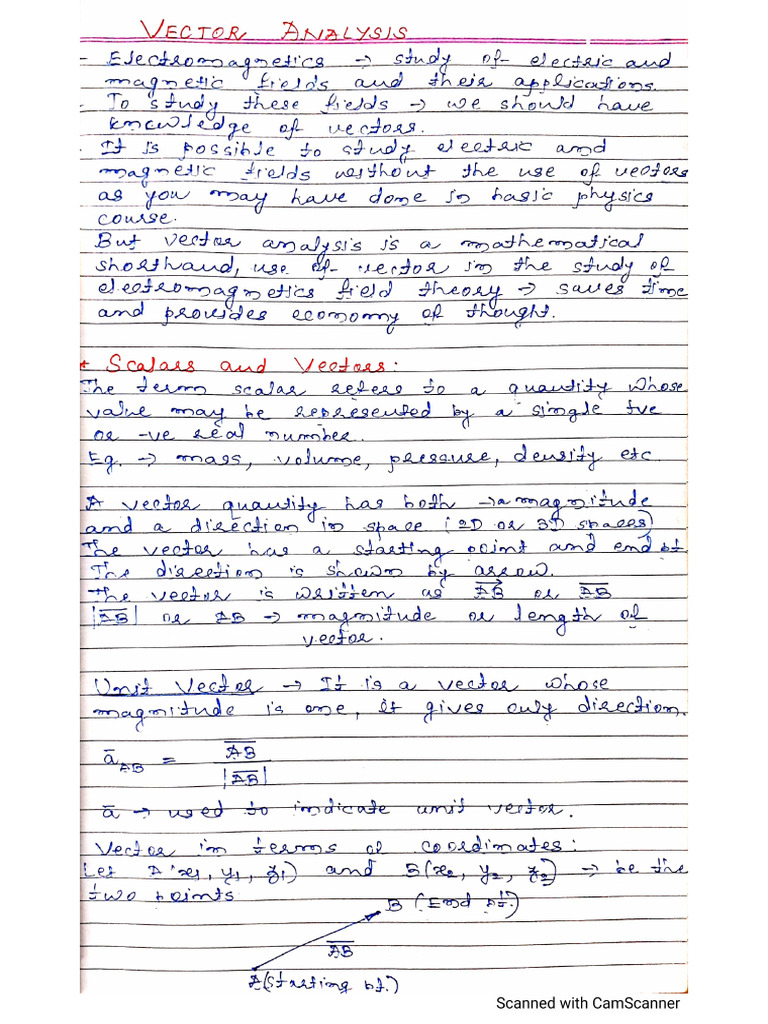 VECTOR ANALYSIS
- Electromagnetics → study of electric and
magnetic fields and their applications.
- To study these fields → we should have
knowledge of vectors.
- It is possible to study electric and
magnetic fields without the use of vectors
as you may have done in basic physics
course.
But vector analysis is a mathematical
shorthand, use of vector in the study of
electromagnetics field theory → saves time
and provides economy of thought.
* Scalars and Vectors:
The term scalar refers to a quantity whose
value may be represented by a single +ve
or -ve real number.
Eg. → mass, volume, pressure, density etc
A vector quantity has both → a magnitude
and a direction in space (2D or 3D spaces)
The vector has a starting point and end pt.
The direction is shown by arrow.
The vector is written as A⃗B⃗ or A̅B̅
|A̅B̅| or AB → magnitude or length of
vector.
Unit Vector → It is a vector whose
magnitude is one, it gives only direction.
a̅AB = A̅B̅ / |A̅B̅|
a̅ → used to indicate unit vector.
Vector in terms of coordinates:
Let A(x1, y1, z1) and B(x2, y2, z2) → be the
two points
B (End pt.)
A̅B̅
A(Starting pt.)
Scanned with CamScanner